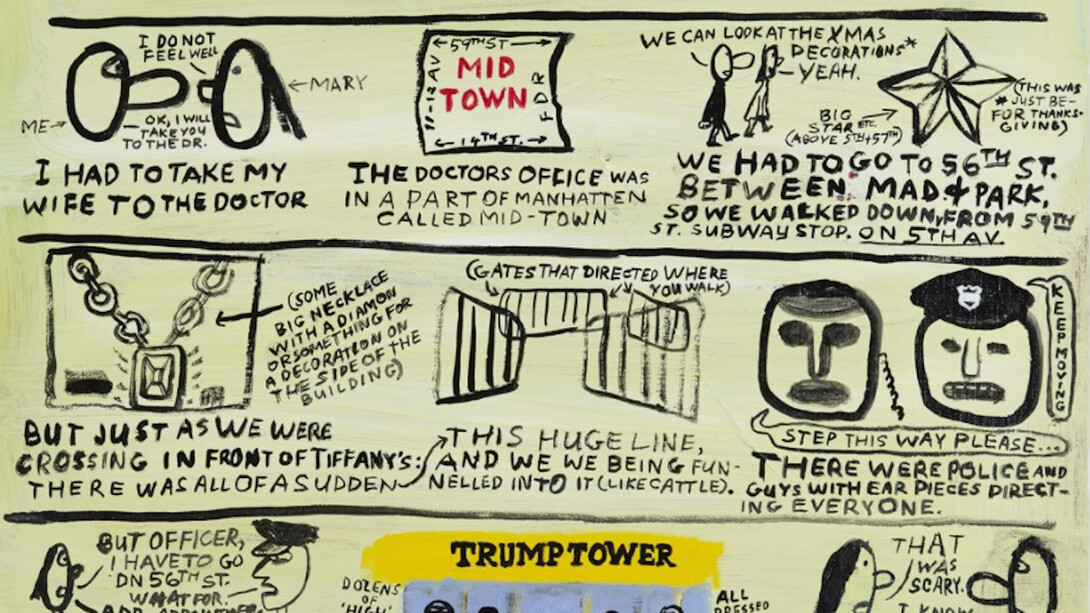 I DO NOT
FEEL WELL
← MARY
ME →
OK, I WILL
TAKE YOU
TO THE DR.
I HAD TO TAKE MY
WIFE TO THE DOCTOR
← 59TH ST →
11-12 AV
MID
TOWN
FDR
← 14TH ST. →
THE DOCTORS OFFICE WAS
IN A PART OF MANHATTEN
CALLED MID-TOWN
WE CAN LOOK AT THE XMAS
DECORATIONS*
YEAH.
BIG
STAR ETC.
(ABOVE 5TH + 57TH)
(THIS WAS
* JUST BE-
FOR THANKS-
GIVING)
WE HAD TO GO TO 56TH ST.
BETWEEN MAD & PARK,
SO WE WALKED DOWN, FROM 59TH
ST. SUBWAY STOP. ON 5TH AV.
(SOME
BIG NECKLACE
WITH A DIAMON
OR SOMETHING FOR
A DECORATION ON
THE SIDE OF THE
BUILDING)
BUT JUST AS WE WERE
CROSSING IN FRONT OF TIFFANY'S:
THERE WAS ALL OF A SUDDEN
(GATES THAT DIRECTED WHERE
YOU WALK)
THIS HUGE LINE,
AND WE WE BEING FUN-
NELLED INTO IT (LIKE CATTLE).
KEEP MOVING
STEP THIS WAY PLEASE...
THERE WERE POLICE AND
GUYS WITH EAR PIECES DIRECT-
ING EVERYONE.
BUT OFFICER,
I HAVE TO GO
ON 56TH ST.
WHAT FOR.
DOZENS
OF
'HIGH'
TRUMP TOWER
ALL
DRESSED
THAT
WAS
SCARY.
I KNOW